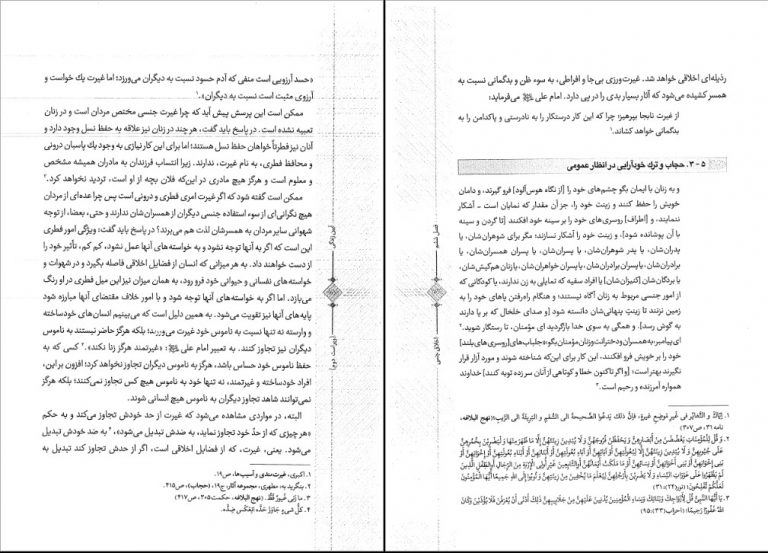 «حسد آرزویی است منفی که آدم حسود نسبت به دیگران می‌ورزد؛ اما غیرت یك خواست و
آرزوی مثبت است نسبت به دیگران».۱
ممکن است این پرسش پیش آید که چرا غیرت جنسی مختص مردان است و در زنان
تعبیه نشده است. در پاسخ باید گفت، هر چند در زنان نیز علاقه به حفظ نسل وجود دارد و
آنان نیز فطرتاً خواهان حفظ نسل هستند؛ اما برای این کار نیازی به وجود یك پاسبان درونی
و محافظ فطری، به نام غیرت، ندارند. زیرا انتساب فرزندان به مادران همیشه مشخص
و معلوم است و هرگز هیچ مادری در این‌که فلان بچه از او است، تردید نخواهد کرد.۲
ممکن است گفته شود که اگر غیرت امری فطری و درونی است پس چرا عده‌ای از مردان
هیچ نگرانی‌ای از سوء استفاده جنسی دیگران از همسرشان ندارند و حتی، بعضا، از توجه
شهوانی سایر مردان به همسرشان لذت هم می‌برند؟ در پاسخ باید گفت: ویژگی امور فطری
این است که اگر به آنها توجه نشود و به خواسته‌های آنها عمل نشود، کم کم، تأثیر خود را
از دست خواهند داد. به هر میزانی که انسان از فضایل اخلاقی فاصله بگیرد و در شهوات و
خواسته‌های نفسانی و حیوانی خود فرو رود، به همان میزان نیز این میل فطری در او رنگ
می‌بازد. اما اگر به خواسته‌های آنها توجه شود و با امور خلاف مقتضای آنها مبارزه شود
پایه‌های آنها نیز تقویت می‌شود. به همین دلیل است که می‌بینیم انسان‌های خودساخته
و وارسته نه تنها نسبت به ناموس خود غیرت می‌ورزند؛ بلکه هرگز حاضر نیستند به ناموس
دیگران نیز تجاوز کنند. به تعبیر امام علی: «غیرتمند هرگز زنا نکند».۳ کسی که به
حفظ ناموس خود حساس باشد، هرگز به ناموس دیگران تجاوز نخواهد کرد؛ افزون بر این،
افراد خودساخته و غیرتمند، نه تنها خود به ناموس هیچ کس تجاوز نمی‌کنند؛ بلکه هرگز
نمی‌توانند شاهد تجاوز دیگران به ناموس هیچ انسانی شوند.
البته، در مواردی مشاهده می‌شود که غیرت از حد خودش تجاوز می‌کند و به حکم
«هر چیزی که از حدّ خود تجاوز نماید، به ضدش تبدیل می‌شود»،۴ به ضد خودش تبدیل
می‌شود. یعنی، غیرت، که از فضایل اخلاقی است، اگر از حدش تجاوز کند تبدیل به
۱. اکبری، غیرت‌مندی و آسیب‌ها، ص۱۹.
۲. بنگرید به: مطهری، مجموعه آثار، ج۱۹، (حجاب)، ص۴۱۵.
۳. ما زَنی غَیورٌ قَطُّ. (نهج البلاغه، حکمت۳۰۵، ص۴۱۷)
۴. کُلُّ شیءٍ جاوَزَ حَدَّه اِنعَکَسَ ضِدُّه.
آیین زندگی
(ویراست دوم)
رذیله‌ای اخلاقی خواهد شد. غیرت‌ورزی بی‌جا و افراطی، به سوء ظن و بدگمانی نسبت به
همسر کشیده می‌شود که آثار بسیار بدی را در پی دارد. امام علی می‌فرماید:
از غیرت نابجا بپرهیز؛ چرا که این کار درستکار را به نادرستی و پاکدامن را به
بدگمانی خواهد کشاند.۱
۵ - ۳. حجاب و ترك خودآرایی در انظار عمومی
و به زنان با ایمان بگو چشم‌های خود را [از نگاه هوس‌آلود] فرو گیرند، و دامان
خویش را حفظ کنند و زینت خود را، جز آن مقدار که نمایان است - آشکار
ننمایند، و [اطراف] روسری‌های خود را بر سینه خود افکنند [تا گردن و سینه
با آن پوشانده شود]، و زینت خود را آشکار نسازند؛ مگر برای شوهران‌شان، یا
پدران‌شان، یا پدر شوهران‌شان، یا پسران‌شان، یا پسران همسران‌شان، یا
برادران‌شان، یا پسران برادران‌شان، یا پسران خواهران‌شان، یا زنان هم‌کیش‌شان،
یا بردگان‌شان [کنیزان‌شان]، یا افراد سفیه که تمایلی به زن ندارند، یا کودکانی که
از امور جنسی مربوط به زنان آگاه نیستند؛ و هنگام راه‌رفتن پاهای خود را به
زمین نزنند تا زینت پنهانی‌شان دانسته شود [و صدای خلخال که بر پا دارند
به گوش رسد]. و همگی به سوی خدا بازگردید ای مؤمنان، تا رستگار شوید.۲
ای پیامبر، به همسران و دخترانت و زنان مؤمنان بگو: «جلباب‌های [روسری‌های بلند]
خود را بر خویش فرو افکنند، این کار برای این‌که شناخته شوند و مورد آزار قرار
نگیرند بهتر است؛ [و اگر تاکنون خطا و کوتاهی از آنان سر زده توبه کنند] خداوند
همواره آمرزنده و رحیم است.۳
۱. إیّاكَ و التَّغایُرَ فی غَیرِ مَوضِعِ غَیرةٍ، فإنَّ ذلكَ یَدعُوا الصَّحیحةَ الی السُّقمِ و البَریئَةَ الی الرَّیبِ؛ (نهج البلاغه،
نامه ۳۱، ص۳۰۷)
۲. وَ قُل لِّلْمُؤْمِنَاتِ يَغْضُضْنَ مِنْ أَبْصَارِهِنَّ وَ يَحْفَظْنَ فُرُوجَهُنَّ وَ لَا يُبْدِينَ زِينَتَهُنَّ إِلَّا مَا ظَهَرَ مِنْهَا وَ لْيَضْرِبْنَ بِخُمُرِهِنَّ
عَلَى جُيُوبِهِنَّ وَ لَا يُبْدِينَ زِينَتَهُنَّ إِلَّا لِبُعُولَتِهِنَّ أَوْ آبَائِهِنَّ أَوْ آبَاءِ بُعُولَتِهِنَّ أَوْ أَبْنَائِهِنَّ أَوْ أَبْنَاءِ بُعُولَتِهِنَّ أَوْ إِخْوَانِهِنَّ أَوْ
بَنِي إِخْوَانِهِنَّ أَوْ بَنِي أَخَوَاتِهِنَّ أَوْ نِسَائِهِنَّ أَوْ مَا مَلَكَتْ أَيْمَانُهُنَّ أَوِ التَّابِعِينَ غَيْرِ أُولِي الْإِرْبَةِ مِنَ الرِّجَالِ أَوِ الطِّفْلِ الَّذِينَ
لَمْ يَظْهَرُوا عَلَى عَوْرَاتِ النِّسَاءِ وَ لَا يَضْرِبْنَ بِأَرْجُلِهِنَّ لِيُعْلَمَ مَا يُخْفِينَ مِن زِينَتِهِنَّ وَ تُوبُوا إِلَى اللَّهِ جَمِيعًا أَيُّهَا الْمُؤْمِنُونَ
لَعَلَّكُمْ تُفْلِحُونَ؛ (نور(۲۴): ۳۱)
۳. يَا أَيُّهَا النَّبِيُّ قُل لِّأَزْوَاجِكَ وَبَنَاتِكَ وَنِسَاءِ الْمُؤْمِنِينَ يُدْنِينَ عَلَيْهِنَّ مِن جَلَابِيبِهِنَّ ذَلِكَ أَدْنَى أَن يُعْرَفْنَ فَلَا يُؤْذَيْنَ وَكَانَ
اللَّهُ غَفُورًا رَّحِيمًا؛ (احزاب(۳۳): ۹۵)
فصل ششم
اخلاق جنسی